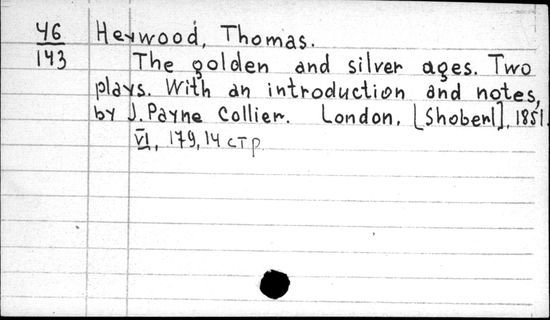 46
143
Heywood, Thomas.
The golden and silver ages. Two
plays. With an introduction and notes,
by J. Payne Collier. London, [Shoberl], 1851.
VI, 179, 14 стр